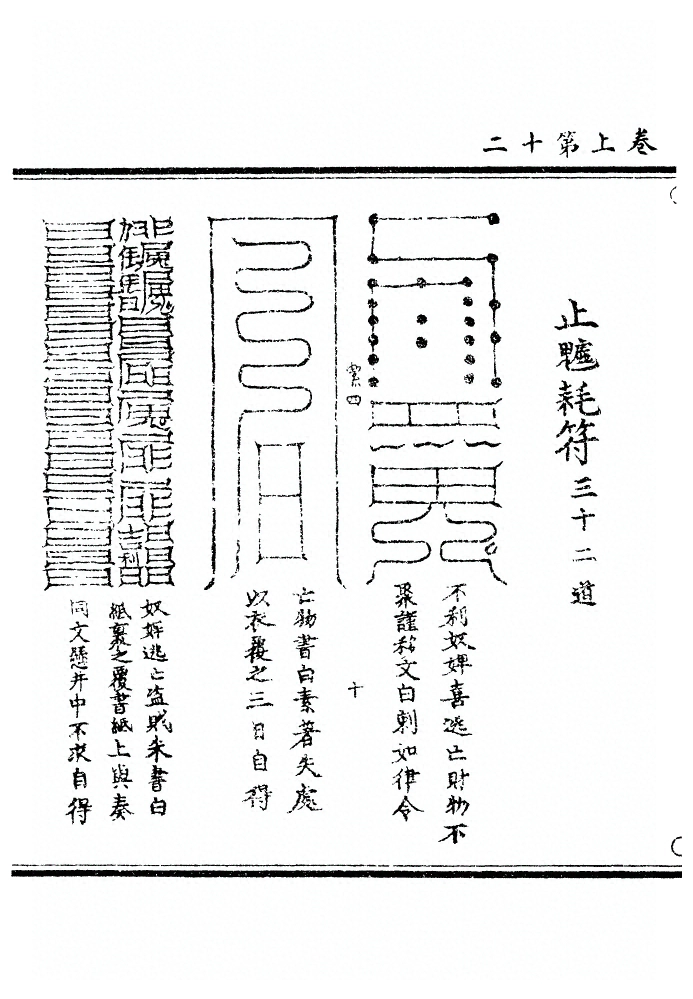 卷上第十二
止魖耗符三十二道
不利奴婢喜逃亡財物不
聚謹移文白刺如律令
四
十
亡物書白素著失處
以衣覆之三日自得
奴婢逃亡盜賊朱書白
紙裹之覆書紙上與奏
同文懸井中不求自得
吉利